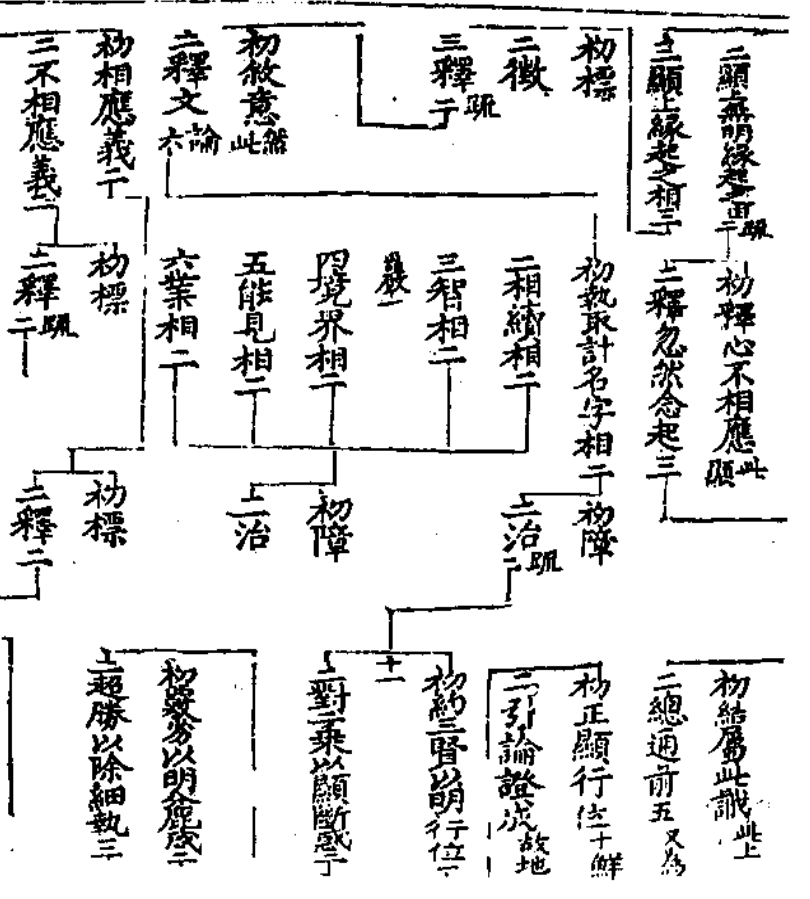 二顯上無明緣起之由二疏
二顯上緣起之相三
初標
二徵
三釋二疏
初敘意然此
二釋文六論
初相應義二
二不相應義二
初釋心不相應此顯
二釋忽然念起三
初執取計名字相二
二相續相二
三智相二
嚴一
四境界相二
五能見相二
六業相二
初標
二釋二疏
初障
二治二疏
初障
二治
初標
二釋二
初結屬此識此上
二總通前五又為
初正顯行位十解
二引論證成故地
初約三賢以明行位二
十一
二對二乘以顯斷惑二
以明麤惑二
二超勝以除細執三